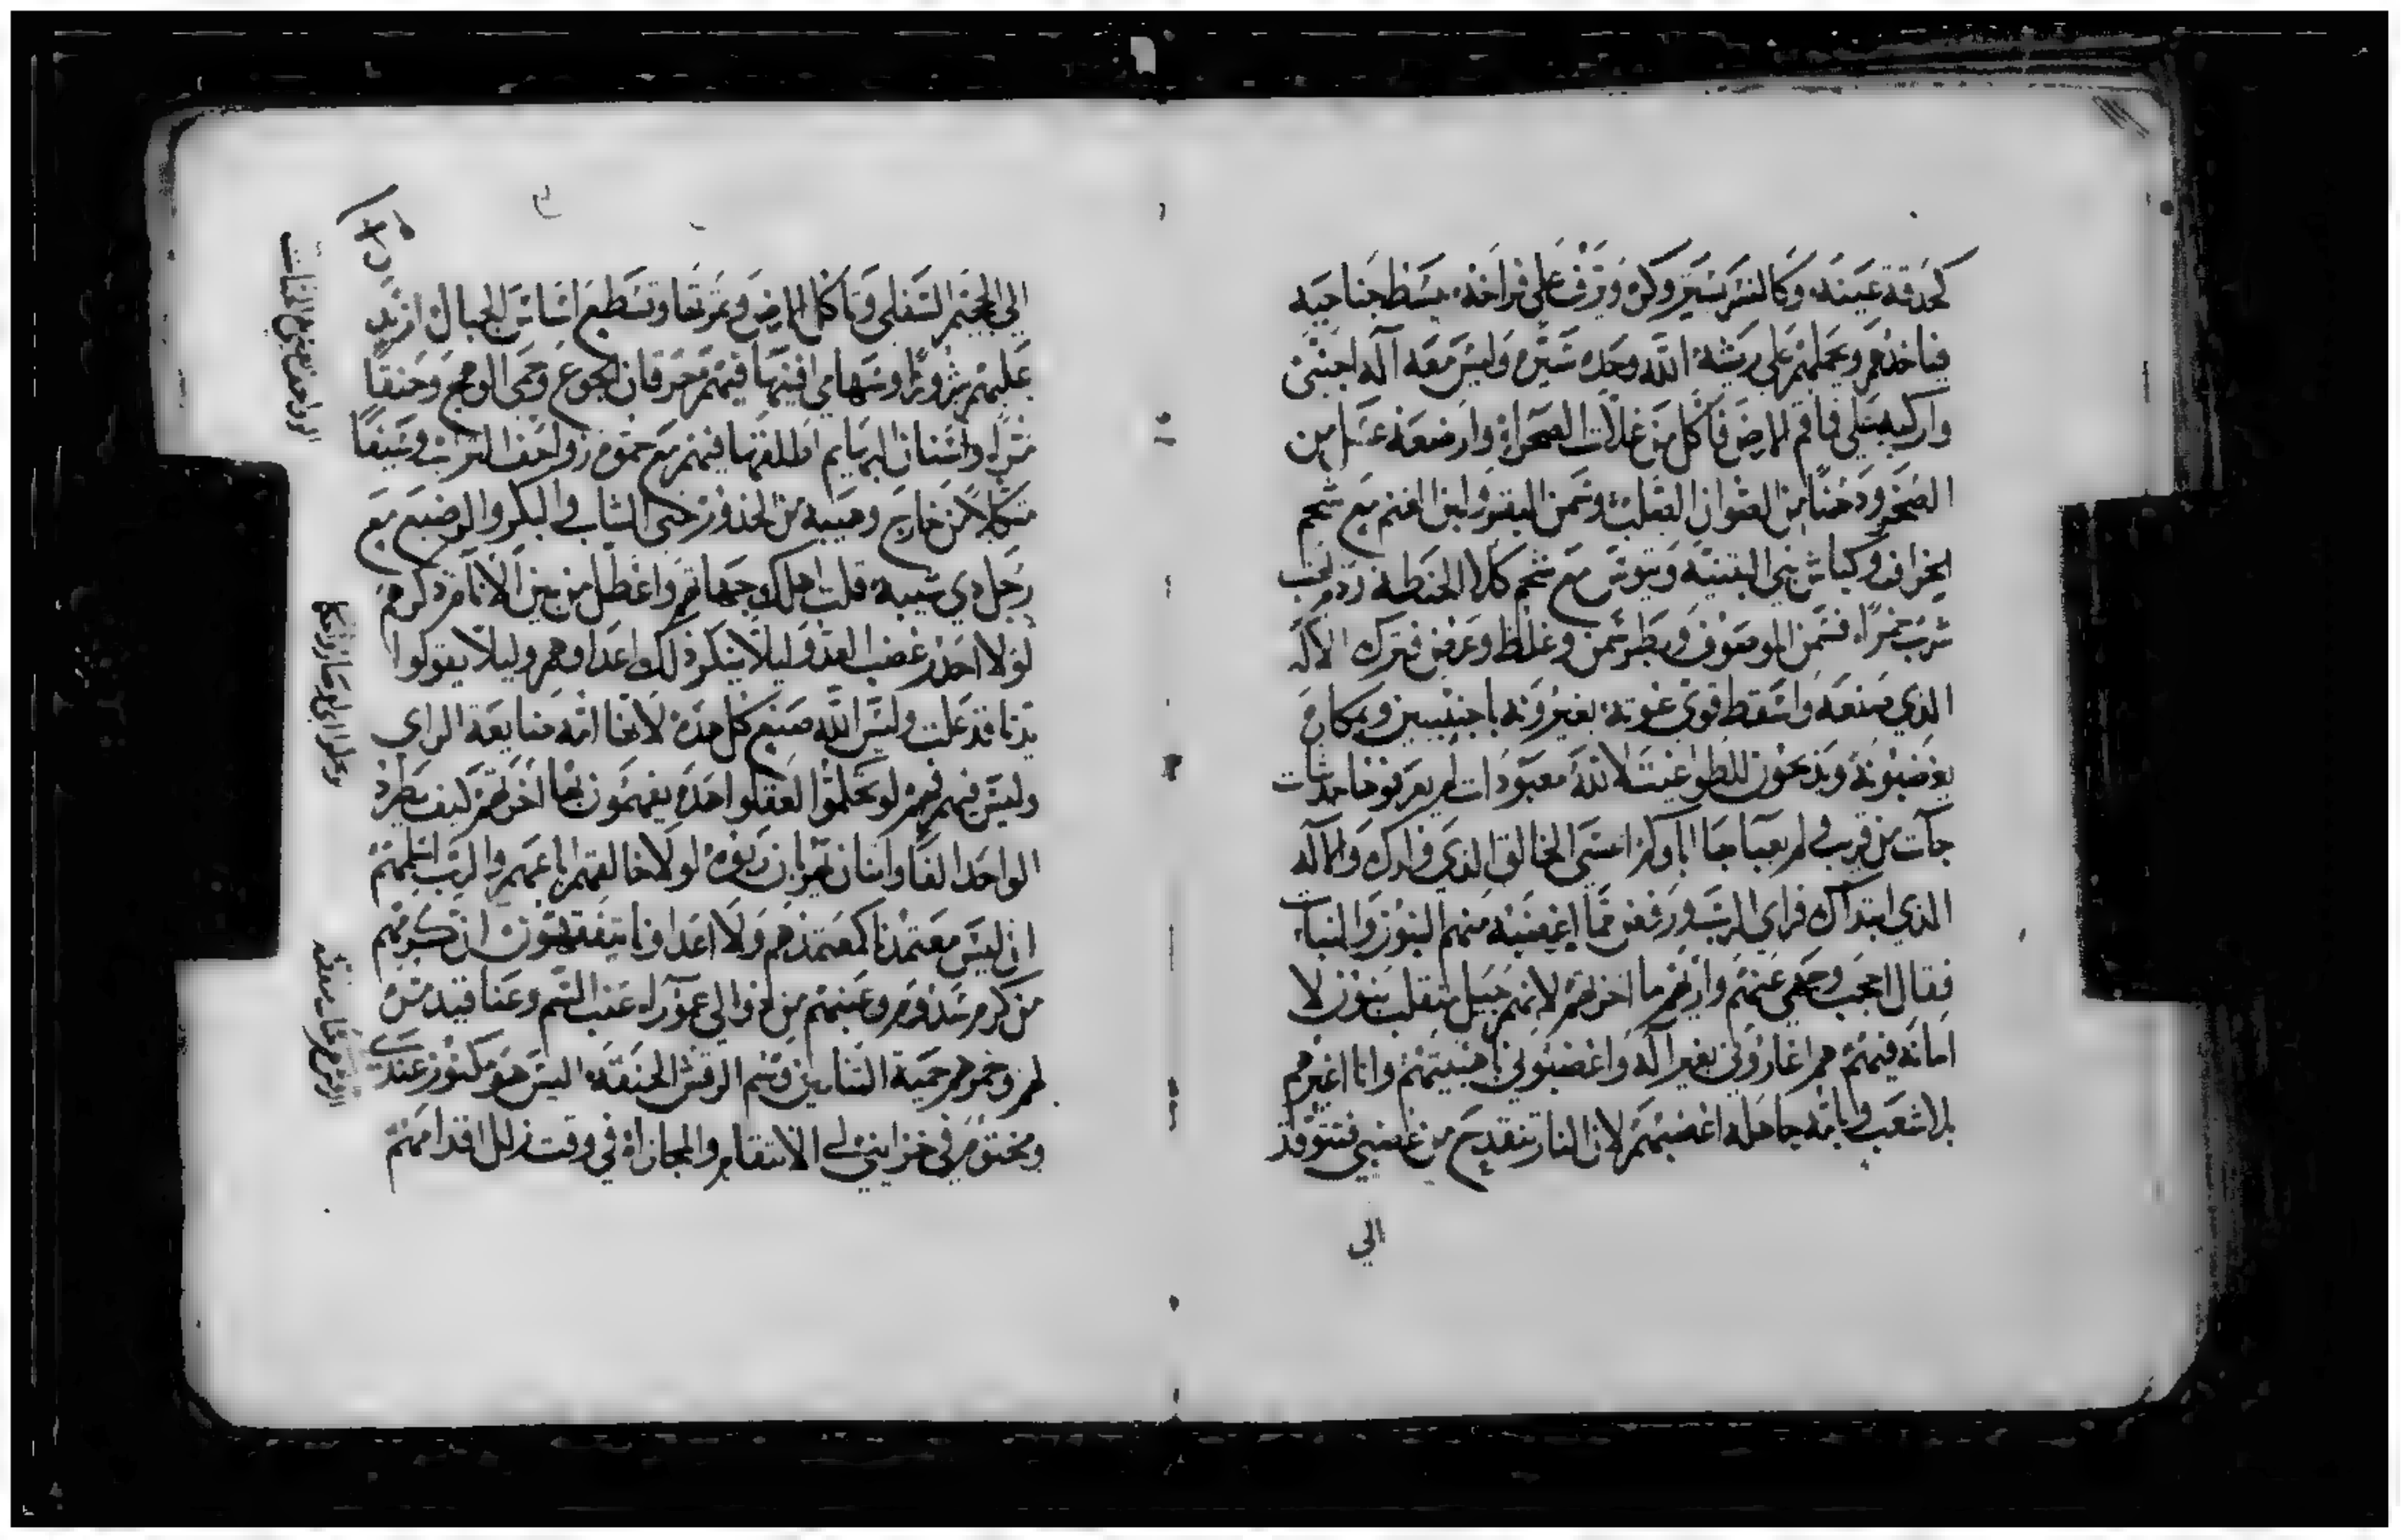 كحدقة عينه وكالنسر يستر وكره ويرف على فراخه يبسط جناحيه
فياخذهم ويحملهم على ريشه الله وحده سيره وليس معه اله اجنبي
واركبه على قاقم الارض فاكل من غلات الصحراء وارضعه عسل من
الصخر ودهنا من الصوان الصلب وسمن البقر ولبن الغنم مع شحم
الخراف وكباش بني البثنية وتيوس مع شحم كلا الحنطة ودم العنب
شرب خمرا فسمن الموصوف وبطر سمن وغلظ وعرض فترك الاله
الذي صنعه واسقط قوي غوته يغيرونه باجنبيين وبمكاره
يغضبونه ويذبحون للطواغيت لا لله معبودات لم يعرفوها حادثات
جآت من قريب لم يعبا بها اباوكم انسي الخالق الذي ولدك والاله
الذي ابتداك فراي الرب ورفض مما اغضبه منهم البنون والبنات
فقال احجب وجهي عنهم وارهم ما اخرتهم لانهم جيل متقلب بنون لا
امانه فيهم هم اغاروني بغير اله واغضبوني باجنبيتهم وانا اغيرهم
بلا شعب وبامة جاهله اغضبهم لان النار تنقدح من غضبي فتتوقد
الي
الي الجحيم السفلي وتاكل الارض وثمرتها وتسطع اساس الجبال ازيد
عليهم شرورا وسهامي افنيها فيهم محرقان الجوع وحمي الوهج وحنقا
مرا واسنان البهايم اطلقها فيهم مع حموم زواحف التراب وسيفا
متكلا من خارج وهيبه من الخدور حتي الشاب والبكر والرضيع مع
رجل ذي شيبه قلت اهلك جهاتهم واعطل من بين الانام ذكرهم
لولا احذر غضب العدو وليلا ينكر ذلك اعداوهم وليلا يقولوا
يدنا قد علت وليس الله صنع كل هذه لانها امه ضايعة الراي
وليس فيهم فهم لو تحكموا لعقلوا هذه يفهمون بها اخرتهم كيف يطرد
الواحد الفا واثنان يهربان ربوه لولا خالقهم باعهم والرب اسلمهم
ان ليس معتمدنا كمعتمدهم ولا اعداونا يتفقهون ان كرمهم
من كرم سدوم وعنبهم من غوالي عمورا عنب السم وعناقيد مره
لهم وخمرهم حمية التنانين وسم الرقش الحنقه اليس هو مكنوز عندي
ومختوم في خزايني لي الانتقام والمجازاة في وقت تزلل اقدامهم